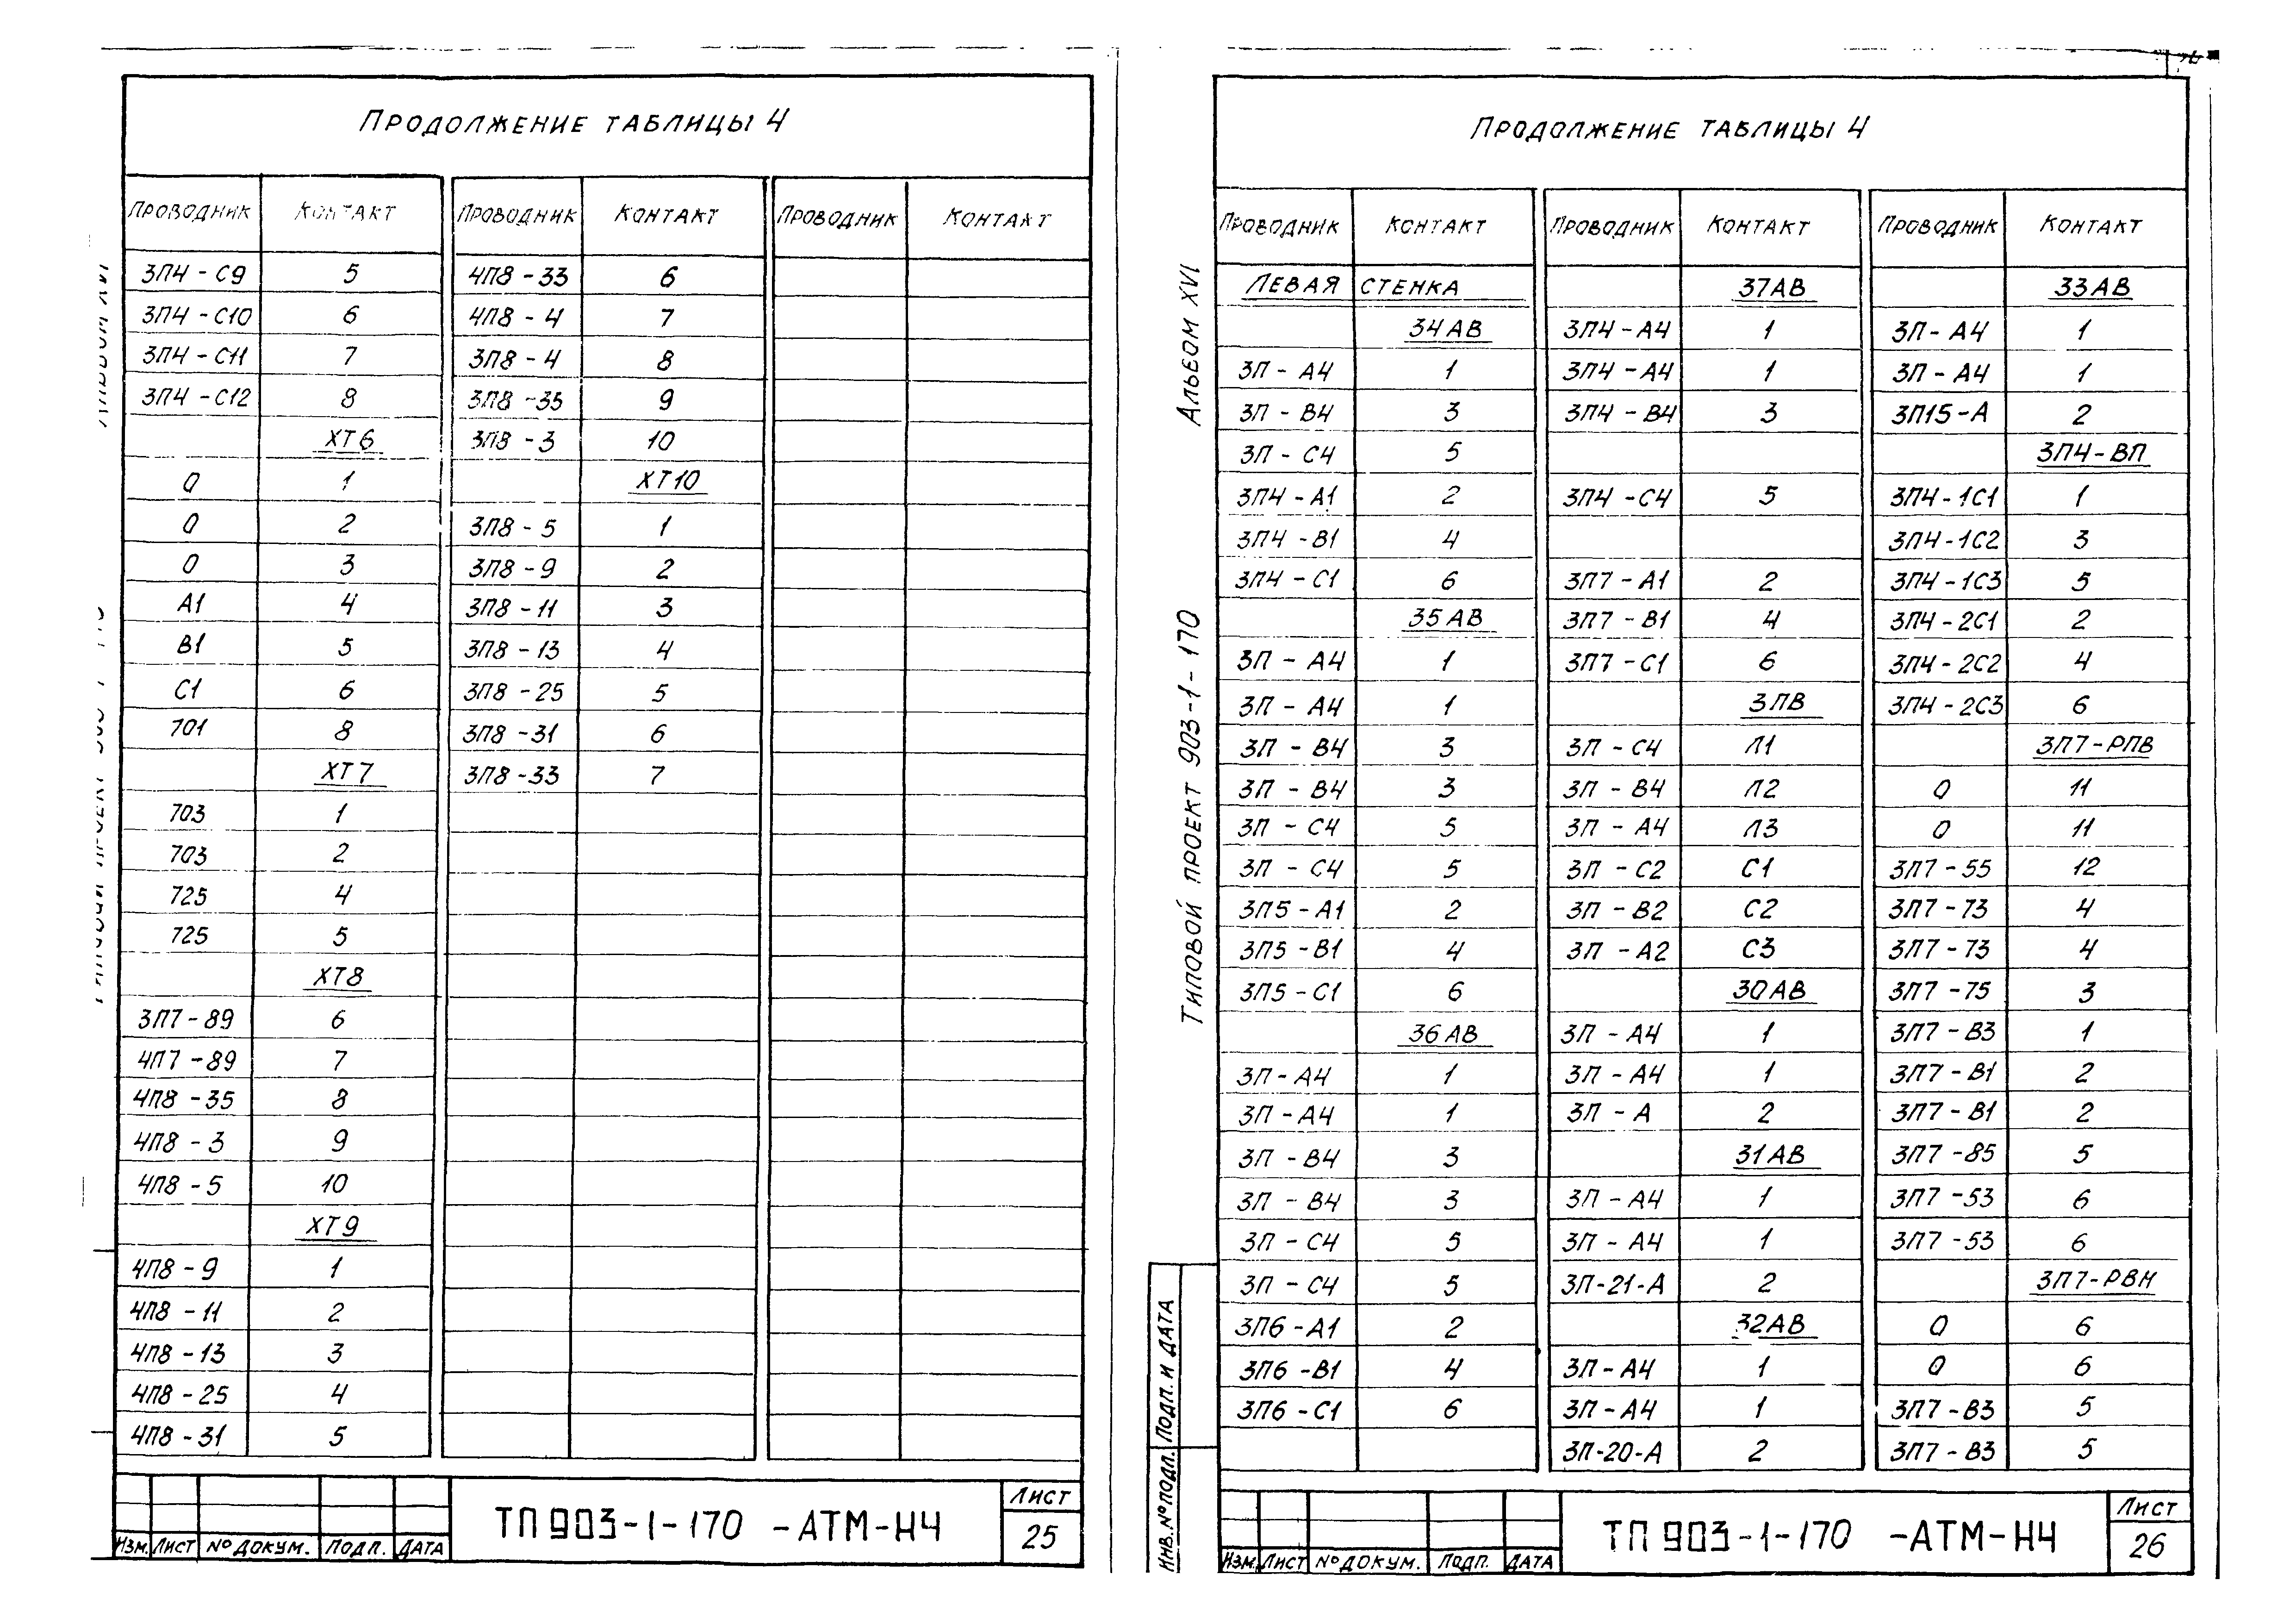 Продолжение таблицы 4
Проводник Контакт Проводник Контакт Проводник Контакт
3П4-С9 5 4П8-33 6
3П4-С10 6 4П8-4 7
3П4-С11 7 3П8-4 8
3П4-С12 8 3П8-35 9
ХТ6 3П8-3 10
0 1 ХТ10
0 2 3П8-5 1
0 3 3П8-9 2
А1 4 3П8-11 3
В1 5 3П8-13 4
С1 6 3П8-25 5
701 8 3П8-31 6
ХТ7 3П8-33 7
703 1
703 2
725 4
725 5
ХТ8
3П7-89 6
4П7-89 7
4П8-35 8
4П8-3 9
4П8-5 10
ХТ9
4П8-9 1
4П8-11 2
4П8-13 3
4П8-25 4
4П8-31 5
Изм. Лист № докум. Подп. Дата
ТП 903-1-170 -АТМ-Н4
Лист
25
Альбом XVI
Типовой проект 903-1-170
Инв. № подл. Подп. и дата
Продолжение таблицы 4
Проводник Контакт Проводник Контакт Проводник Контакт
Левая стенка 37АВ 33АВ
34АВ 3П4-А4 1 3П-А4 1
3П-А4 1 3П4-А4 1 3П-А4 1
3П-В4 3 3П4-В4 3 3П15-А 2
3П-С4 5 3П4-ВП
3П4-А1 2 3П4-С4 5 3П4-1С1 1
3П4-В1 4 3П4-1С2 3
3П4-С1 6 3П7-А1 2 3П4-1С3 5
35АВ 3П7-В1 4 3П4-2С1 2
3П-А4 1 3П7-С1 6 3П4-2С2 4
3П-А4 1 3ПВ 3П4-2С3 6
3П-В4 3 3П-С4 Л1 3П7-РПВ
3П-В4 3 3П-В4 Л2 0 11
3П-С4 5 3П-А4 Л3 0 11
3П-С4 5 3П-С2 С1 3П7-55 12
3П5-А1 2 3П-В2 С2 3П7-73 4
3П5-В1 4 3П-А2 С3 3П7-73 4
3П5-С1 6 30АВ 3П7-75 3
36АВ 3П-А4 1 3П7-В3 1
3П-А4 1 3П-А4 1 3П7-В1 2
3П-А4 1 3П-А 2 3П7-В1 2
3П-В4 3 31АВ 3П7-85 5
3П-В4 3 3П-А4 1 3П7-53 6
3П-С4 5 3П-А4 1 3П7-53 6
3П-С4 5 3П-21-А 2 3П7-РВН
3П6-А1 2 32АВ 0 6
3П6-В1 4 3П-А4 1 0 6
3П6-С1 6 3П-А4 1 3П7-В3 5
3П-20-А 2 3П7-В3 5
Изм. Лист № докум. Подп. Дата
ТП 903-1-170 -АТМ-Н4
Лист
26